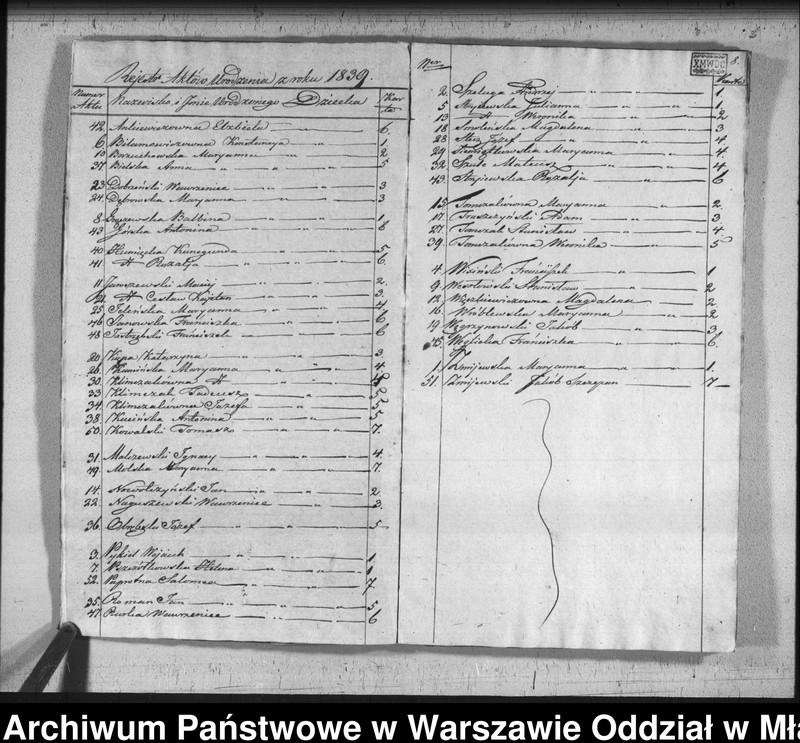 Rejestr Aktów Urodzenia z roku 1839.
Numer Aktu Nazwisko i Imie Urodzonego Dziecka Karta
42. Antcicwiczowna Elzbieta 6.
6. Kmilianna 1.
10 Borzuchowska Maryanna 2
37 Bielska Anna 5
23 Dobrzeński Wawrzeniec 3
24 Dębrowska Maryanna 3
8 Balbina 1.
43 Górska Antonina 6
40 Kunegunda 5
41 Rozalja 6.
11 Janczewski Maciej 2.
21. Cesław Kajetan 3.
25 Jeleńska Maryanna 4
46 Janowska Franciszka 6
48 Jastrzębski Franciszek 6
20 Kępa Katarzyna 3
26 Kamińska Maryanna 4
30 Klimczakówna
33 Klimczak Tadeusz 5
34 Klimczakówna Jozefa 5
38 Kucińska Antonina 5
50. Kowalski Tomasz 7.
31. Malczewski Ignacy 4.
49. Molska Maryanna 7.
14. Jan 2.
22. Naguszewski Wawrzeniec 3.
36. Józef 5
3. Pykiel Wojciech 1
7. Helena 1
52. Paprotna Salomea 7
35. Roman Jan 5
47. Rolka Wawrzeniec 6
Nr. Karta
XMWDC
8.
2. Szeluga Andrzej 1.
5 Julianna 1.
13 Weronika 2
18 Smoleńska Magdalena 3
28 Józef 4.
29 Maryanna 4.
32 Szulc Mateusz 4
43. Stajewska Rozalja 6
15. Tomczakówna Maryanna 2.
17. Truszczyński Adam 3.
27 Tomczak Stanisław 4
39. Tomczakówna Weronika 5
4. Wiśinski Franciszek 1
9. Wesołowski Stanisław 2
12. Wierzbiewiczowna Magdalena 2.
16. Wróblewska Maryanna 2
19 Węgrzynowski Jakób 3
45 Wesielska Franciszka 6.
1 Żmijewska Maryanna 1.
51. Żmijewski Jakób Szczepan 7
Archiwum Państwowe w Warszawie Oddział w Mła